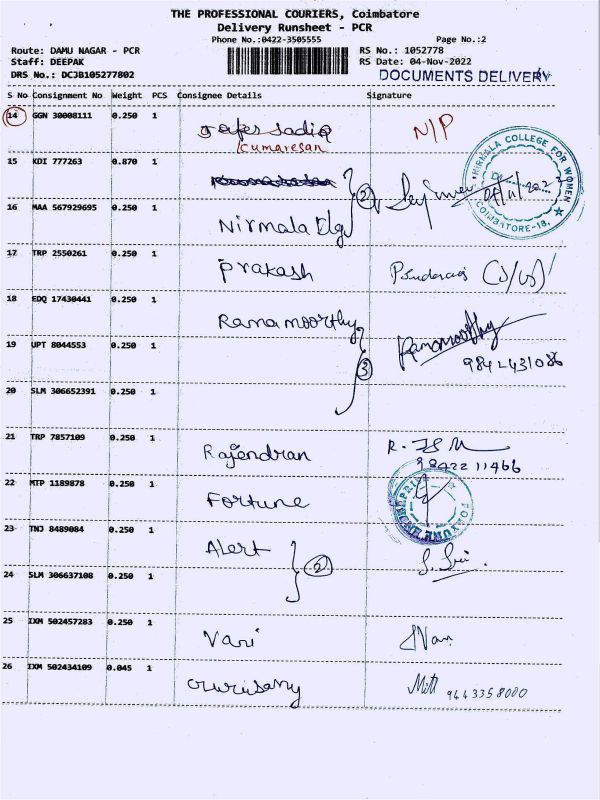 THE PROFESSIONAL COURIERS, Coimbatore
Delivery Runsheet - PCR
Phone No.:0422-3505555 Page No.:2
Route: DAMU NAGAR - PCR RS No.: 1052778
Staff: DEEPAK RS Date: 04-Nov-2022
DRS No.: DCJB105277802 DOCUMENTS DELIVERY
S No Consignment No Weight PCS Consignee Details Signature
14 GGN 30008111 0.250 1 Jafer Sadiq N/P
Cumaresan
15 KDI 777263 0.870 1
NIRMALA COLLEGE FOR WOMEN
COIMBATORE-18.
16 MAA 567929695 0.250 1 Nirmala Clg 2
17 TRP 2550261 0.250 1 Prakash
18 EDQ 17430441 0.250 1 Ramamoorthy Ramamoorthy
19 UPT 8044553 0.250 1 3 9842431086
20 SLM 306652391 0.250 1
21 TRP 7857109 0.250 1 Rajendran
9842211466
22 MTP 1189878 0.250 1 Fortune
23 TNJ 8489084 0.250 1 Alert
24 SLM 306637108 0.250 1 2
25 IXM 502457283 0.250 1 Vari
26 IXM 502434109 0.045 1 9443358000